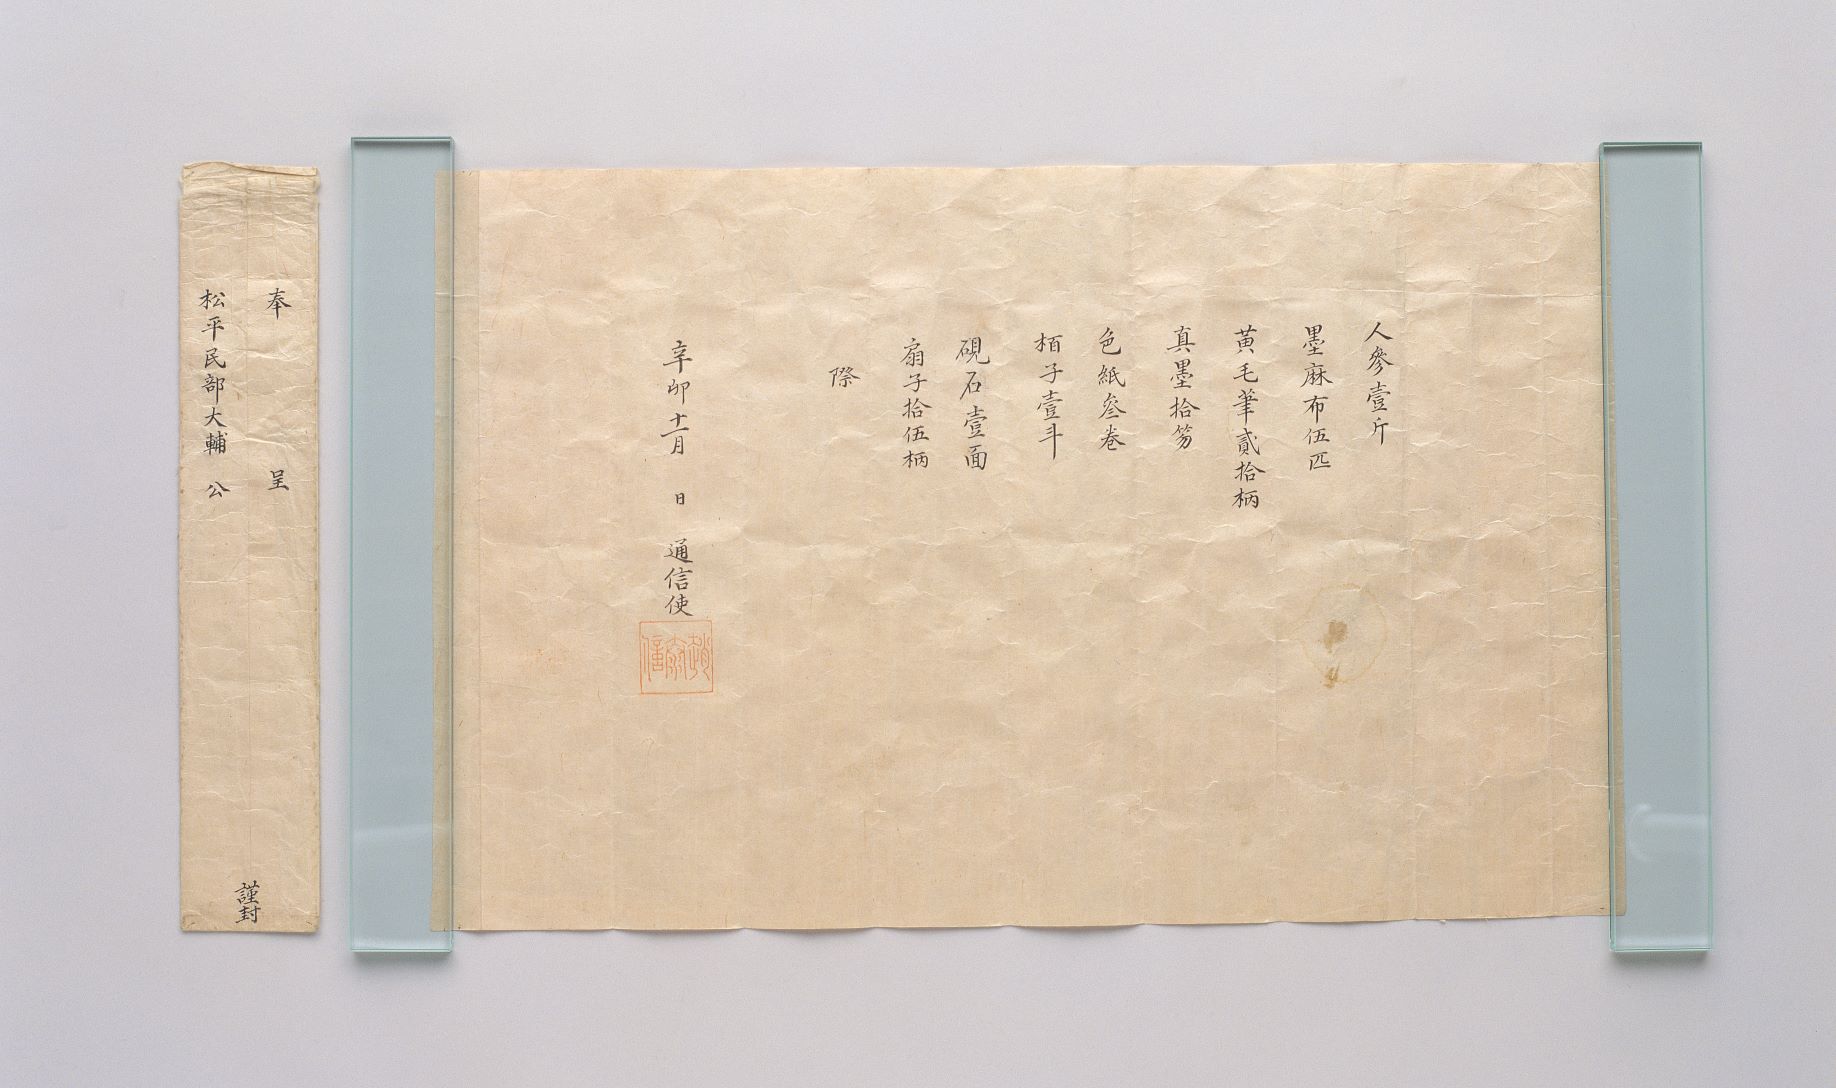 人參壹斤
墨麻布伍匹
黃毛筆貳拾柄
真墨拾笏
色紙叄卷
栢子壹斗
硯石壹面
扇子拾伍柄
際
辛卯十一月 日 通信使
奉 呈
松平民部大輔 公
謹封